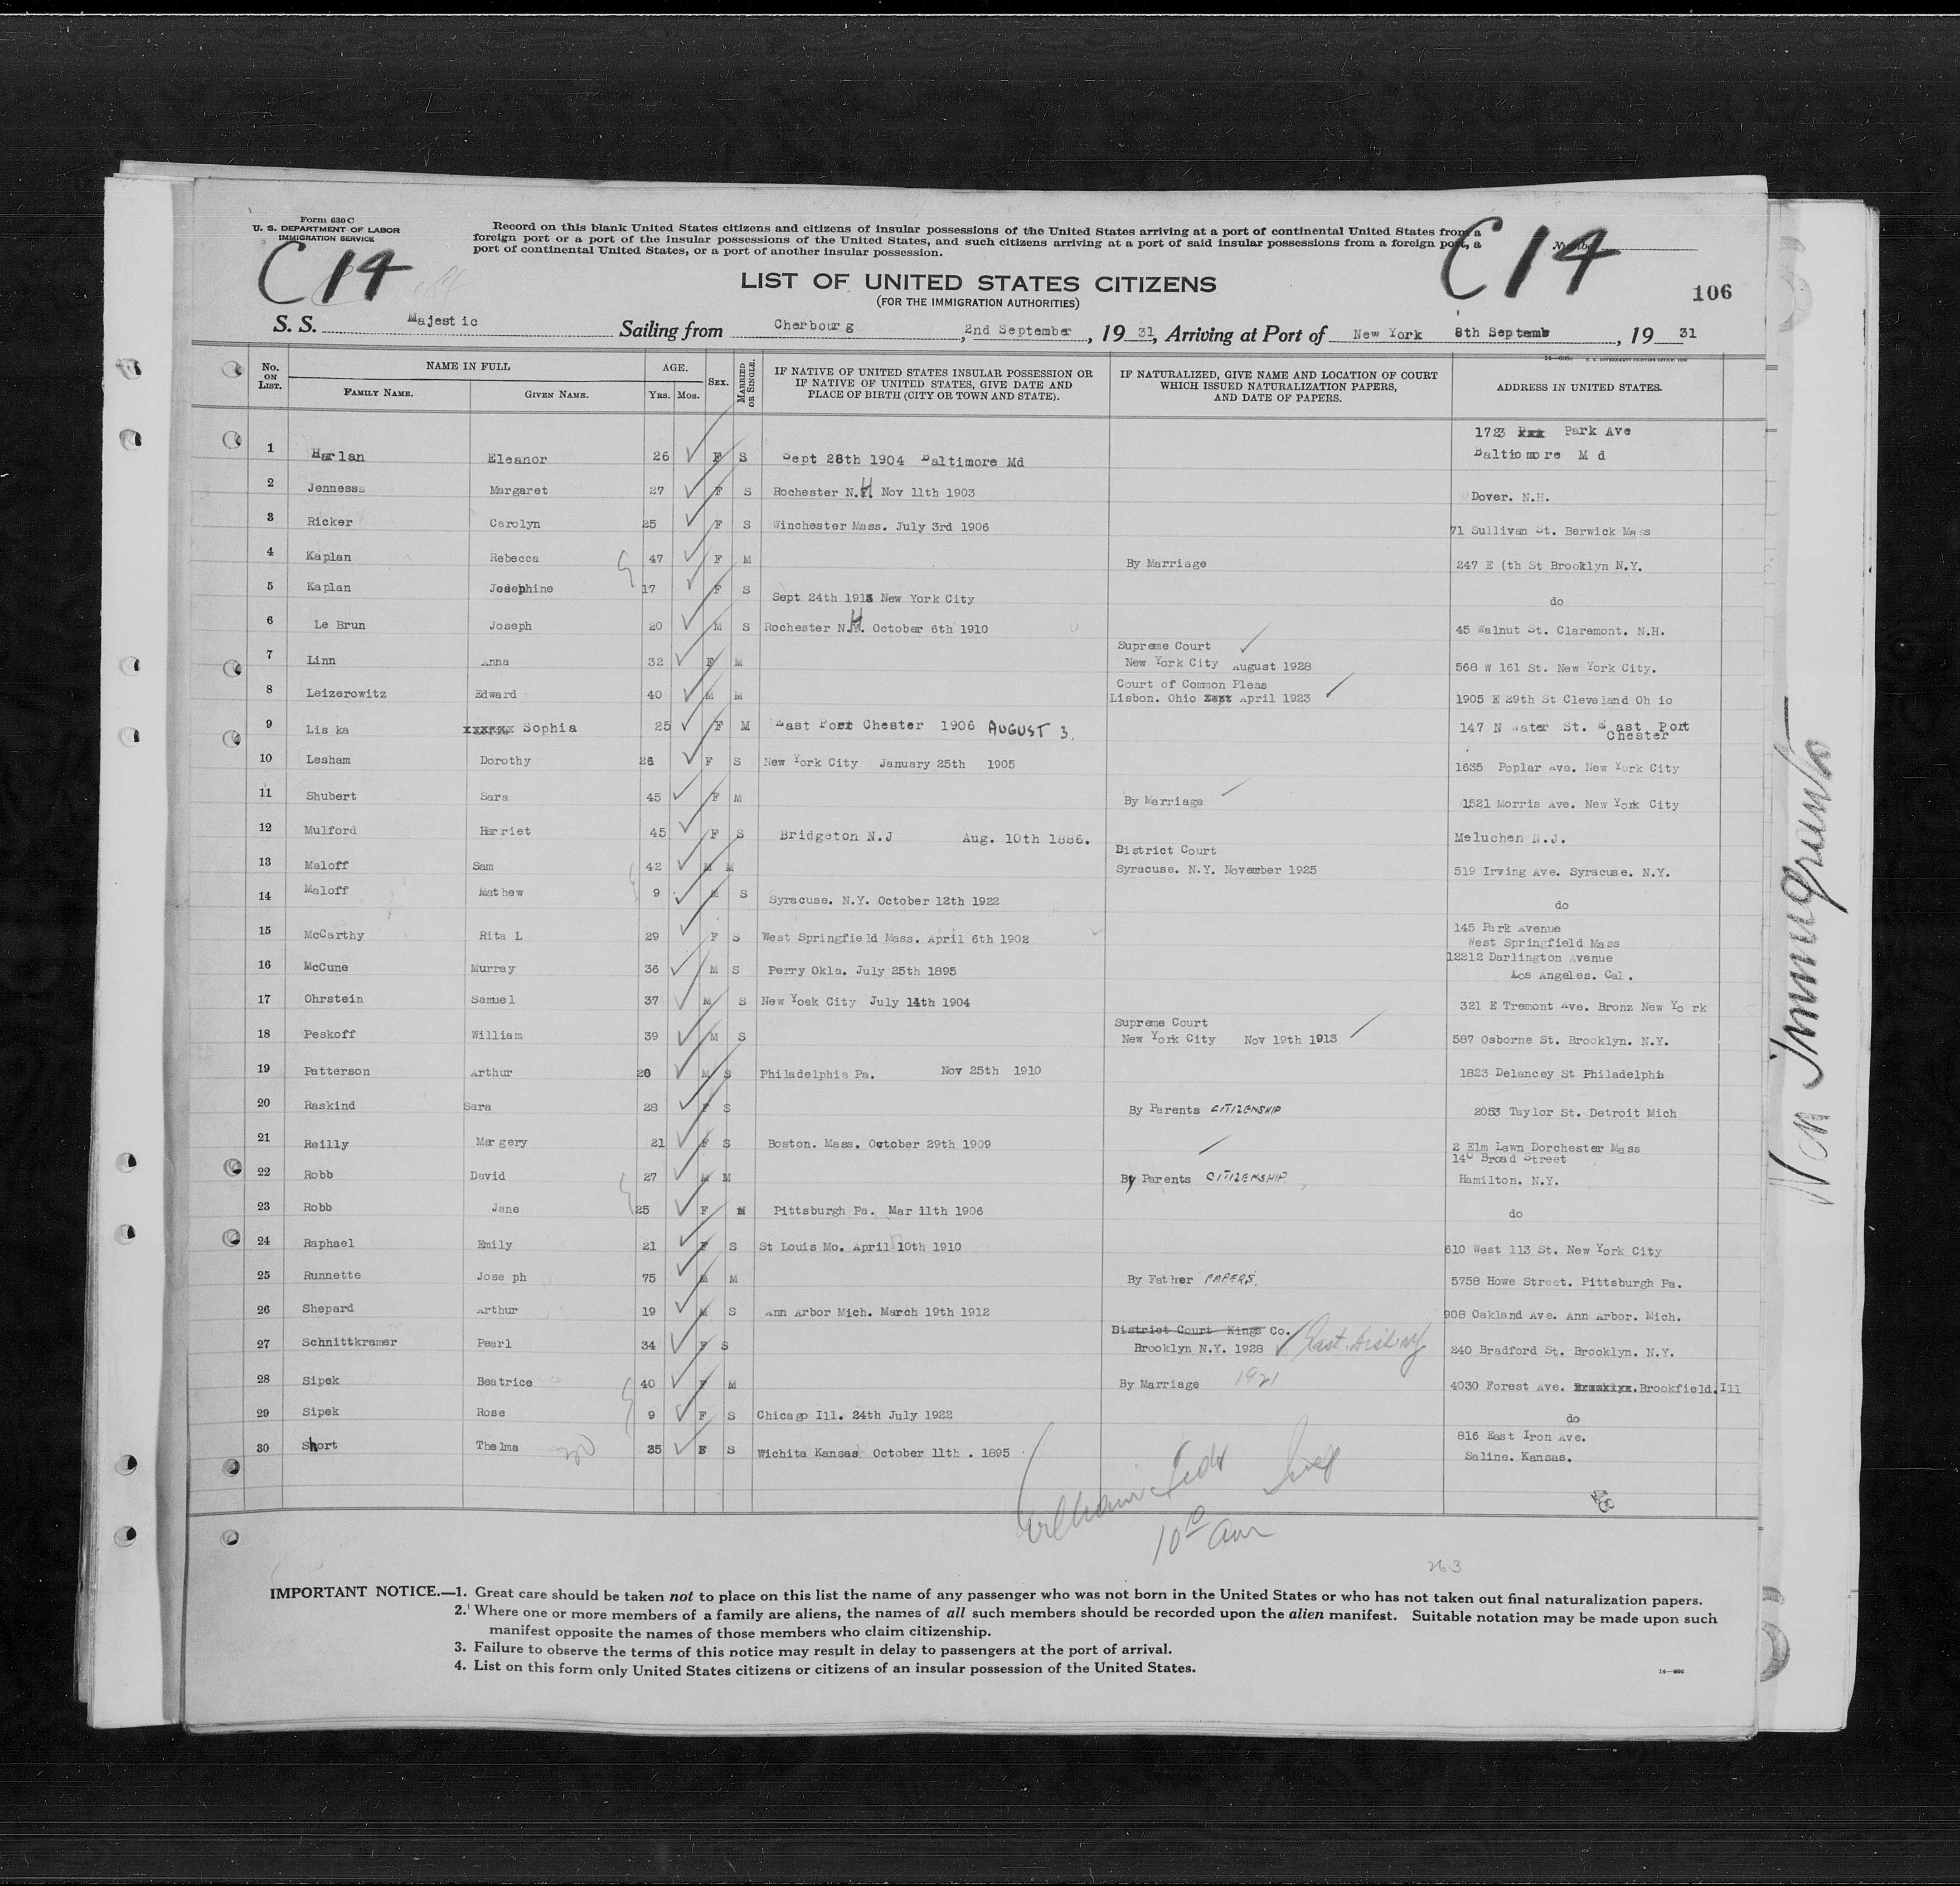 Form 630 C
U. S. DEPARTMENT OF LABOR
IMMIGRATION SERVICE
Record on this blank United States citizens and citizens of insular possessions of the United States arriving at a port of continental United States from a
foreign port or a port of the insular possessions of the United States, and such citizens arriving at a port of said insular possessions from a foreign port, a
port of continental United States, or a port of another insular possession.
Number
C14
C14
LIST OF UNITED STATES CITIZENS
(FOR THE IMMIGRATION AUTHORITIES)
106
S. S. Majestic Sailing from Cherbourg, 2nd September, 19 31, Arriving at Port of New York 8th Septemb, 19 31
No. ON LIST. NAME IN FULL FAMILY NAME. GIVEN NAME. AGE. YRS. MOS. SEX. MARRIED OR SINGLE. IF NATIVE OF UNITED STATES INSULAR POSSESSION OR IF NATIVE OF UNITED STATES, GIVE DATE AND PLACE OF BIRTH (CITY OR TOWN AND STATE). IF NATURALIZED, GIVE NAME AND LOCATION OF COURT WHICH ISSUED NATURALIZATION PAPERS, AND DATE OF PAPERS. ADDRESS IN UNITED STATES.
1723 Park Ave
1 Harlan Eleanor 26 F S Sept 28th 1904 Baltimore Md Baltiomore M d
2 Jenness Margaret 27 F S Rochester N.H Nov 11th 1903 Dover. N.H.
3 Ricker Carolyn 25 F S Winchester Mass. July 3rd 1906 71 Sullivan St. Berwick Mass
4 Kaplan Rebecca 47 F M By Marriage 247 E (th St Brooklyn N.Y.
5 Kaplan Josephine 17 F S Sept 24th 1913 New York City do
6 Le Brun Joseph 20 M S Rochester N.H. October 6th 1910 45 Walnut St. Claremont. N.H.
Supreme Court
7 Linn Anna 32 F M New York City August 1928 568 W 161 St. New York City.
Court of Common Pleas
8 Leizerowitz Edward 40 M M Lisbon. Ohio April 1923 1905 E 29th St Cleveland Oh io
9 Lis ka xxxxxx Sophia 25 F M East Port Chester 1906 AUGUST 3. 147 N Water St. East Port
Chester
10 Lesham Dorothy 26 F S New York City January 25th 1905 1635 Poplar Ave. New York City
11 Shubert Sara 45 F M By Marriage 1521 Morris Ave. New York City
12 Mulford Harriet 45 F S Bridgeton N.J Aug. 10th 1886. Meluchen N.J.
District Court
13 Maloff Sam 42 M M Syracuse. N.Y. November 1925 519 Irving Ave. Syracuse. N.Y.
14 Maloff Mathew 9 M S Syracuse. N.Y. October 12th 1922 do
145 Park Avenue
15 McCarthy Rita L 29 F S West Springfield Mass. April 6th 1902 West Springfield Mass
12212 Darlington Avenue
16 McCune Murray 36 M S Perry Okla. July 25th 1895 Los Angeles. Cal.
17 Ohrstein Samuel 37 M S New Yoek City July 14th 1904 321 E Tremont Ave. Bronz New Yo rk
Supreme Court
18 Peskoff William 39 M S New York City Nov 19th 1913 587 Osborne St. Brooklyn. N.Y.
19 Patterson Arthur 20 M S Philadelphia Pa. Nov 25th 1910 1823 Delancey St Philadelphia
20 Raskind Sara 28 F S By Parents CITIZENSHIP 2053 Taylor St. Detroit Mich
21 Reilly Margery 21 F S Boston. Mass. October 29th 1909 2 Elm Lawn Dorchester Mass
Broad Street
22 Robb David 27 M M By Parents CITIZENSHIP. Hamilton. N.Y.
23 Robb Jane 25 F M Pittsburgh Pa. Mar 11th 1906 do
24 Raphael Emily 21 F S St Louis Mo. April 10th 1910 610 West 113 St. New York City
25 Runnette Jose ph 75 M M By Father PAPERS. 5758 Howe Street. Pittsburgh Pa.
26 Shepard Arthur 19 M S Ann Arbor Mich. March 19th 1912 908 Oakland Ave. Ann Arbor. Mich.
District Court Kings Co.
27 Schnittkramer Pearl 34 F S Brooklyn N.Y. 1928 East. 240 Bradford St. Brooklyn. N.Y.
28 Sipek Beatrice 40 F M By Marriage 1921 4030 Forest Ave. Brookfield.Ill
29 Sipek Rose 9 F S Chicago Ill. 24th July 1922 do
816 East Iron Ave.
30 Short Thelma 35 F S Wichita Kansas October 11th . 1895 Saline. Kansas.
30
William
10 am
263
Non Immigrants
IMPORTANT NOTICE.—1. Great care should be taken not to place on this list the name of any passenger who was not born in the United States or who has not taken out final naturalization papers.
2. Where one or more members of a family are aliens, the names of all such members should be recorded upon the alien manifest. Suitable notation may be made upon such
manifest opposite the names of those members who claim citizenship.
3. Failure to observe the terms of this notice may result in delay to passengers at the port of arrival.
4. List on this form only United States citizens or citizens of an insular possession of the United States.